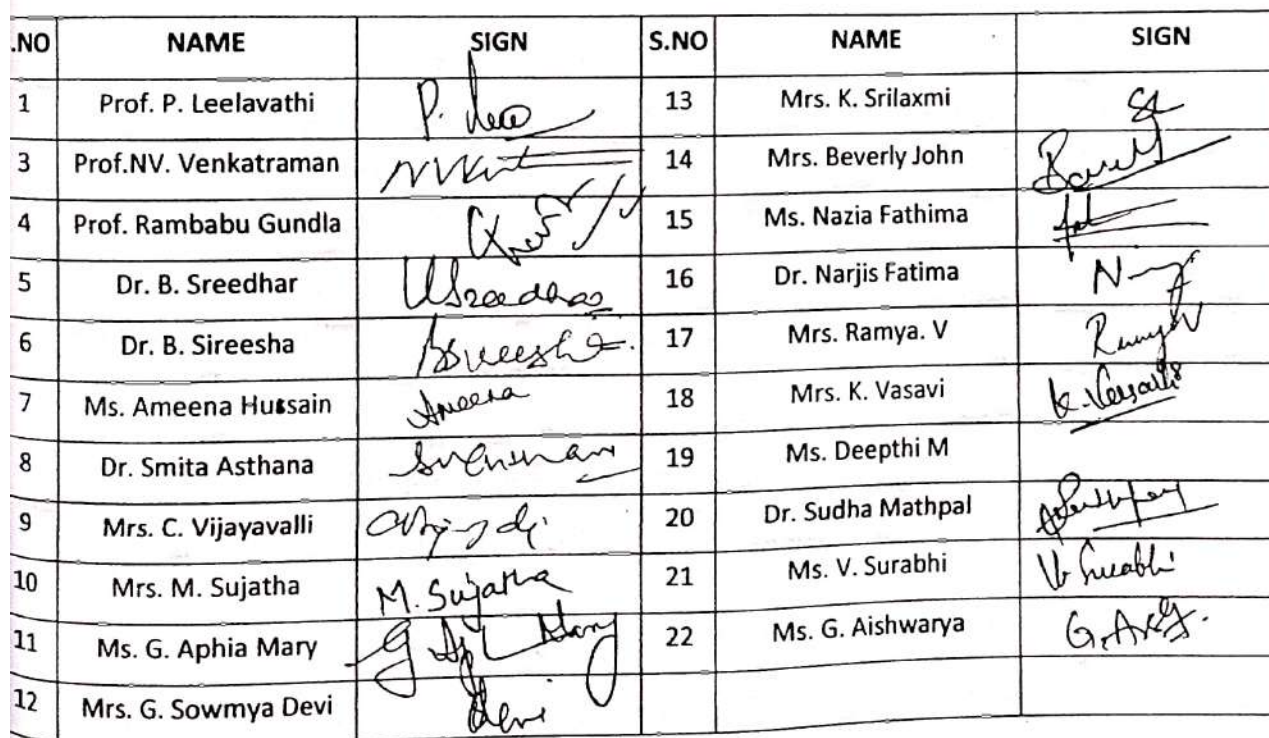 .NO NAME SIGN S.NO NAME SIGN
1 Prof. P. Leelavathi P. Leela 13 Mrs. K. Srilaxmi
3 Prof.NV. Venkatraman 14 Mrs. Beverly John
4 Prof. Rambabu Gundla 15 Ms. Nazia Fathima
5 Dr. B. Sreedhar BSreedhar 16 Dr. Narjis Fatima
6 Dr. B. Sireesha BSireesha 17 Mrs. Ramya. V Ramya V
7 Ms. Ameena Hussain Ameena 18 Mrs. K. Vasavi K. Vasavi
8 Dr. Smita Asthana 19 Ms. Deepthi M
9 Mrs. C. Vijayavalli 20 Dr. Sudha Mathpal
10 Mrs. M. Sujatha M. Sujatha 21 Ms. V. Surabhi V. Surabhi
11 Ms. G. Aphia Mary G Mary 22 Ms. G. Aishwarya
12 Mrs. G. Sowmya Devi Devi